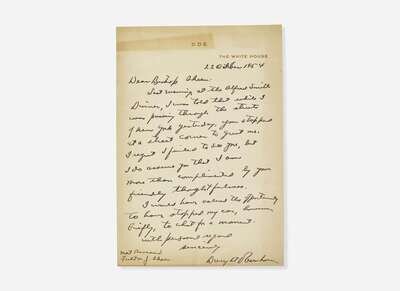 DDE
THE WHITE HOUSE
22 October 1954
Dear Bishop Sheen:
Last evening at the Alfred Smith
Dinner, I was told that while I
was passing through the streets
of New York yesterday, you stopped
at a street corner to greet me.
I regret I failed to see you, but
I do assure you that I am
more than complimented by your
friendly thoughtfulness.
I would have valued the opportunity
to have stopped my car, however
briefly, to chat for a moment.
With personal regard
Sincerely
Dwight Eisenhower
Most Reverend
Fulton J. Sheen